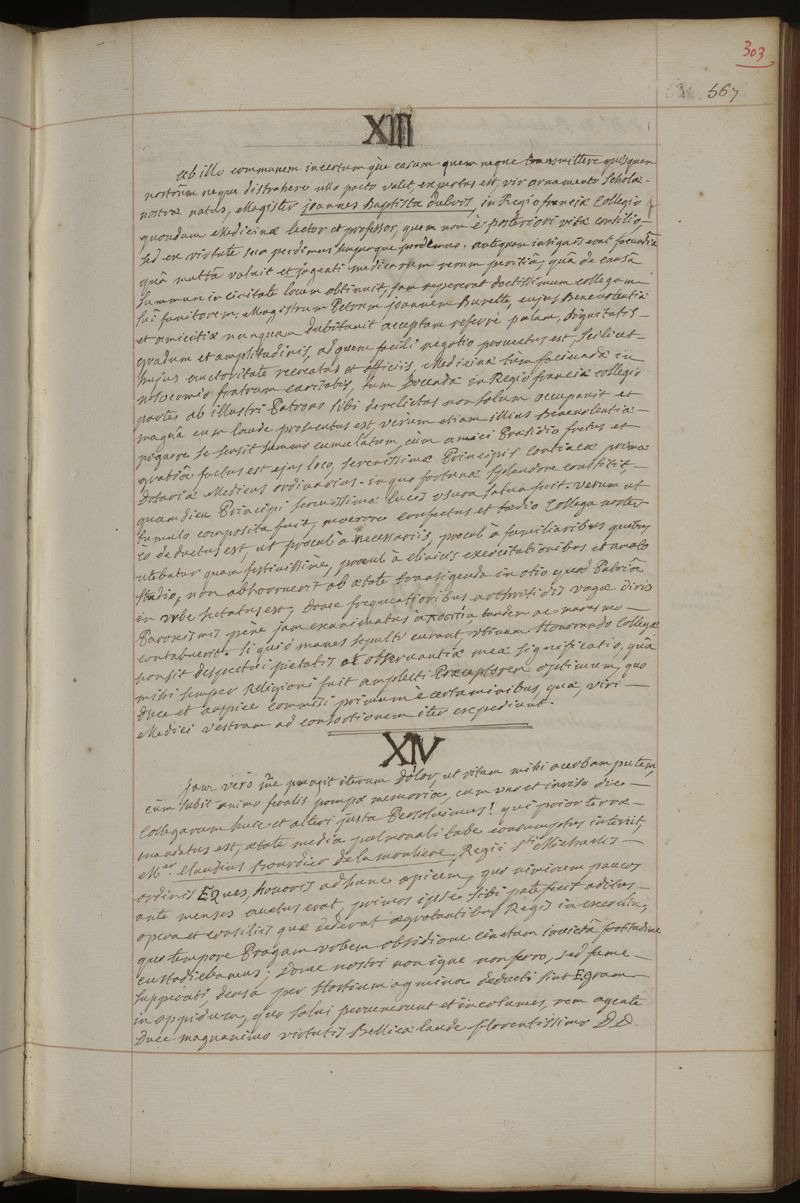 303
567
XIII
Ab illo communem incertumque casum quem neque transmittere quisquam
nostrum neque distrahere ullo pacto valet, expertus est, vir ornamento scholæ
nostræ natus, Magister joannes Baptista dubois, in Regio franciæ Collegio
quondam Medicinæ lector et professor, quem non è posteriori vitæ consilio,
sed ex virtute sua perdimus semperque
quâ multâ valuit et ingenti medicarum rerum peritiâ, quâ de causâ
summum in civitate locum obtinuit, jam repererat doctissimum collegam
sui fautorem, Magistrum Petrum joannem Burette, cujus Benevolentiæ
et amicitiæ nunquam dubitavit acceptam referre palam, dignitatis
gradum et amplitudinis, ad quem facili negotio provectus est, scilicet
hujus auctoritate recreatus et officiis, Medicinæ tùm faciundæ in
nosocomio fratrum caritatis, tum docendæ in Regio franciæ collegio
partes ab illustri Patrono sibi derelictas non solum occupavit et
magnâ cum laude prosecutus est, verùm etiam illius Benevolentiæ
pignore se sensit summo cumulatum, cùm amici Præsidio fretus et
gratiâ factus est ejus loco, serenissimæ Principis Contiacæ primæ
Dotariæ Medicus ordinarius. in quo fortunæ splendore constitit,
quamdiu Principi serenissimæ lucis usura salva fuit. Verum ut
tumulo composita fuit, moerore confectus et tædio Collega noster
eò deductus est, ut procul à necessariis, procul à familiaribus quibus
utebatur quam festivissimè, procul à clinicis exercitationibus et amato
studio, non abhorruerit ab ætate transigenda in otio quod Patriâ
in urbe sectatus est, donec frequentioribus arthritidis vagæ diris
Paroxismis pene jam exanimatus tandem ac
contabuerit. Si quid manes sepulti curant utinam Honorando Collegæ
possit despectui pietatis et observantiæ meæ significatio, quâ
mihi semper Religioni fuit amplecti Præceptorem optimum, quo
Duce et auspice commisi primum è certaminibus, quæ, viri
Medici Vestram ad consortionem iter expediunt.
XIV
Jam verò me peragit iterum dolor, ut vitam mihi acerbam putem,
cùm subit animo feralis pompæ memoria, cum uno et inviso die
Collegarum huic et alteri justa Persolvimus! qui prior terræ
mandatus est, ætate media pulmonali tabe consumptus interiit,
Mer. Claudius Bourdier de la mouliere, Regii Sti. Michaelis
ordinis EQues, honoris ad hunc apicem, quo nimirum paucos
ante menses auctus erat, primos ipse sibi patefecit aditus
opera et consiliis quæ dederat ægrotantibus Regis in exercitu,
quo tempore Pragam urbem obsidione cinctam invictâ fortitudine
custodiebamus; Donec nostri non igne non ferro, sed fame
suppressi densa per Hostium agmina deducti sint EGram
in oppidum, quo salvi pervenerunt et incolumes, rem agente
Duce magnanimo virtutis Bellicæ laude florentissimo DD.